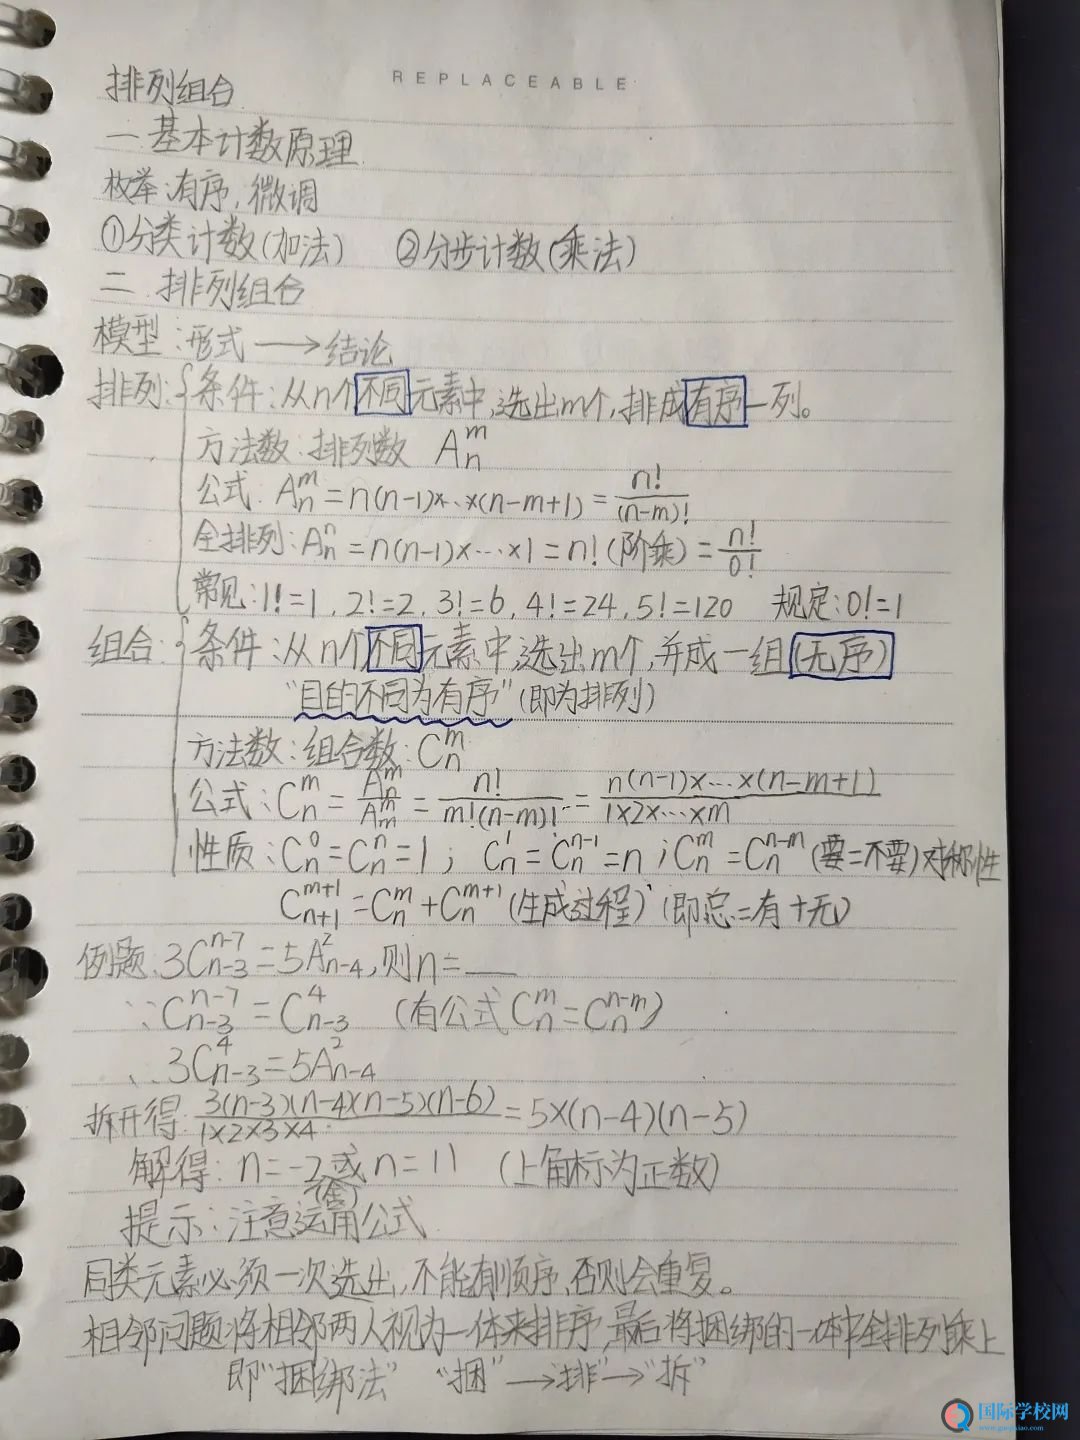 REPLACEABLE
排列组合
一 基本计数原理
枚举:有序,微调
①分类计数(加法) ②分步计数(乘法)
二 排列组合
模型:形式→结论
排列:{条件:从n个不同元素中,选出m个,排成有序一列。
方法数:排列数 Aₙᵐ
公式:Aₙᵐ=n(n-1)×…×(n-m+1)=n!/(n-m)!
全排列:Aₙⁿ=n(n-1)×…×1=n!(阶乘)=n!/0!
常见:1!=1,2!=2,3!=6,4!=24,5!=120 规定:0!=1
组合:{条件:从n个不同元素中,选出m个,并成一组(无序)
“目的不同为有序”(即为排列)
方法数:组合数:Cₙᵐ
公式:Cₙᵐ=Aₙᵐ/Aₘᵐ=n!/m!(n-m)!=n(n-1)×…×(n-m+1)/1×2×…×m
性质:Cₙ⁰=Cₙⁿ=1;Cₙ¹=Cₙⁿ⁻¹=n;Cₙᵐ=Cₙⁿ⁻ᵐ(要=不要)对称性
Cₙ₊₁ᵐ⁺¹=Cₙᵐ+Cₙᵐ⁺¹(生成过程)(即总=有+无)
例题:3Cₙ₋₃ⁿ⁻⁷=5Aₙ₋₄²,则n=__
∵Cₙ₋₃ⁿ⁻⁷=Cₙ₋₃⁴ (有公式Cₙᵐ=Cₙⁿ⁻ᵐ)
∴3Cₙ₋₃⁴=5Aₙ₋₄²
拆开得:3(n-3)(n-4)(n-5)(n-6)/1×2×3×4=5×(n-4)(n-5)
解得:n=-2(舍)或n=11 (上角标为正数)
提示:注意运用公式
同类元素必须一次选出,不能有顺序,否则会重复。
相邻问题:将相邻两人视为一体来排序,最后将捆绑的一体中全排列乘上
即“捆绑法” “捆”→“排”→“拆”
国际学校网